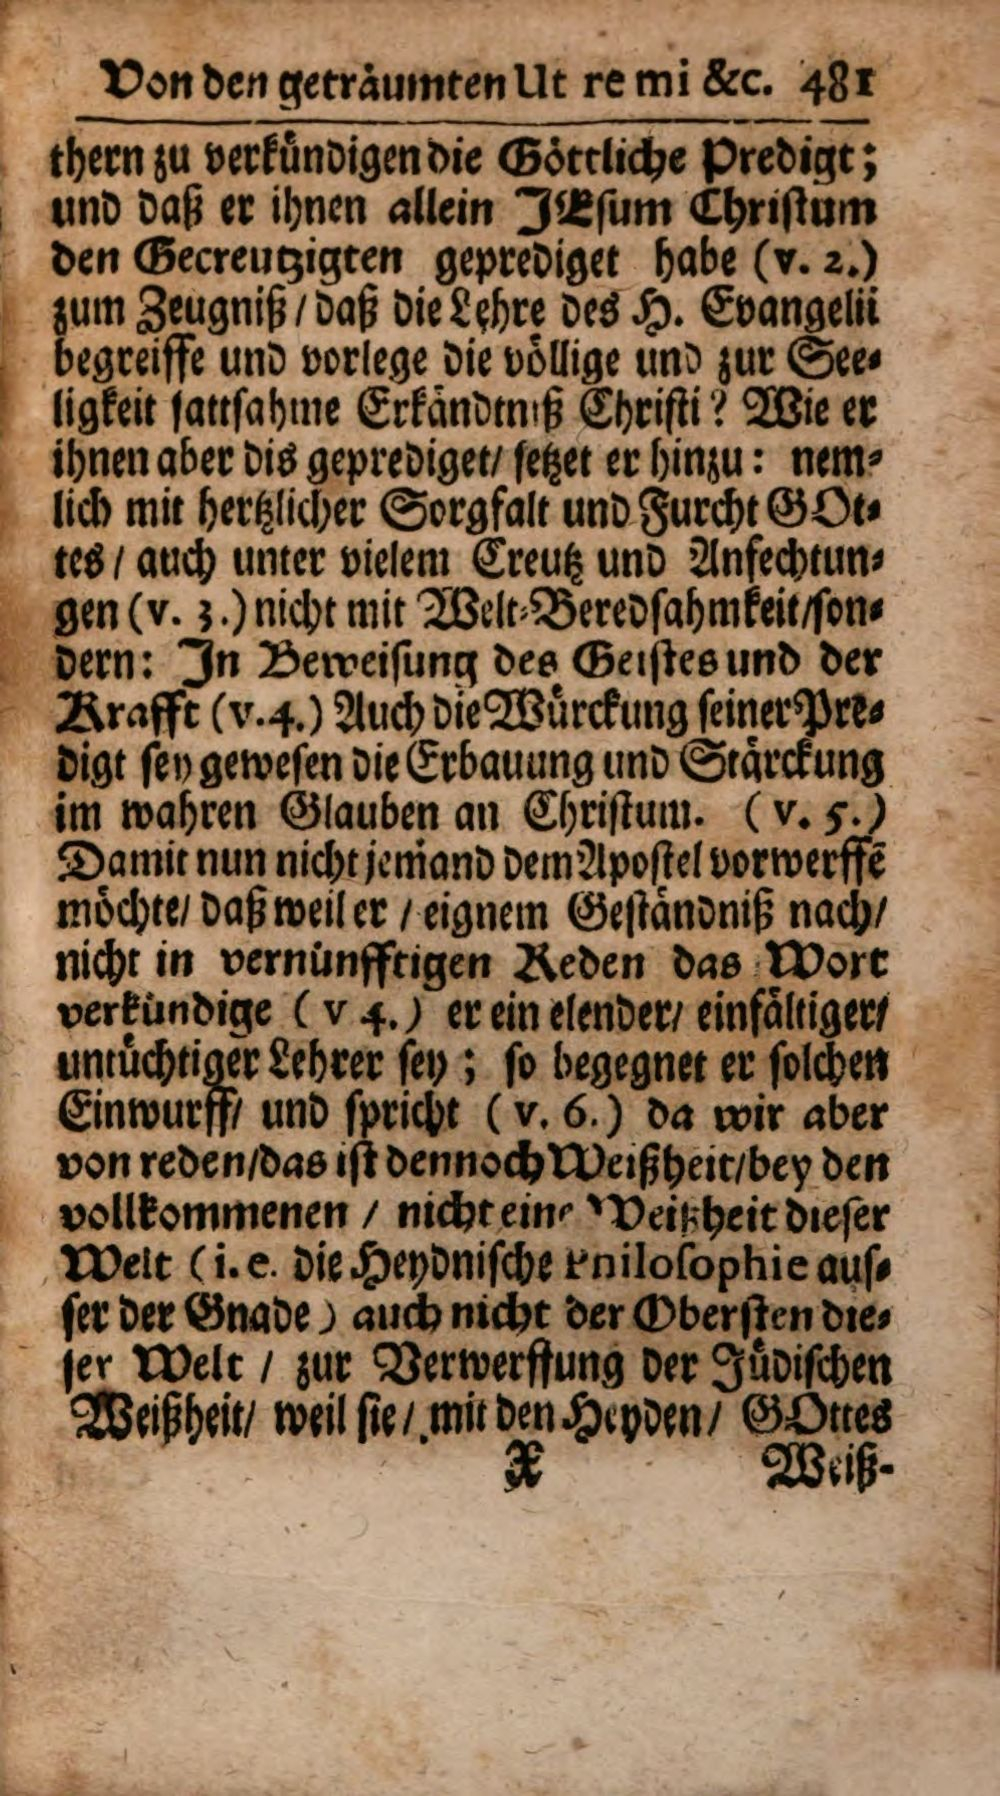 Von den geträumten Ut re mi &c. 481
thern zu verkündigen die Göttliche Predigt;
und daß er ihnen allein JEsum Christum
den Gecreutzigten geprediget habe (v. 2.)
zum Zeugniß / daß die Lehre des H. Evangelii
begreiffe und vorlege die völlige und zur See-
ligkeit sattsahme Erkändtniß Christi? Wie er
ihnen aber dis geprediget/ setzet er hinzu: nem-
lich mit hertzlicher Sorgfalt und Furcht GOt-
tes / auch unter vielem Creutz und Anfechtun-
gen (v. 3.) nicht mit Welt-Beredsahmkeit/son-
dern: In Beweisung des Geistes und der
Krafft (v. 4.) Auch die Würckung seiner Pre-
digt sey gewesen die Erbauung und Stärckung
im wahren Glauben an Christum. (v. 5.)
Damit nun nicht jemand dem Apostel vorwerffē
möchte/ daß weil er / eignem Geständniß nach/
nicht in vernünfftigen Reden das Wort
verkündige (v 4.) er ein elender/ einfältiger/
untüchtiger Lehrer sey; so begegnet er solchen
Einwurff/ und spricht (v. 6.) da wir aber
von reden/das ist dennoch Weißheit/bey den
vollkommenen / nicht eine Weißheit dieser
Welt (i. e. die Heydnische Philosophie aus-
ser der Gnade) auch nicht der Obersten die-
ser Welt / zur Verwerffung der Jüdischen
Weißheit/ weil sie/ mit den Heyden/ GOttes
X Weiß-